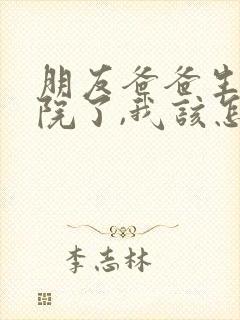 朋友爸爸生
院了,我该怎
李志林